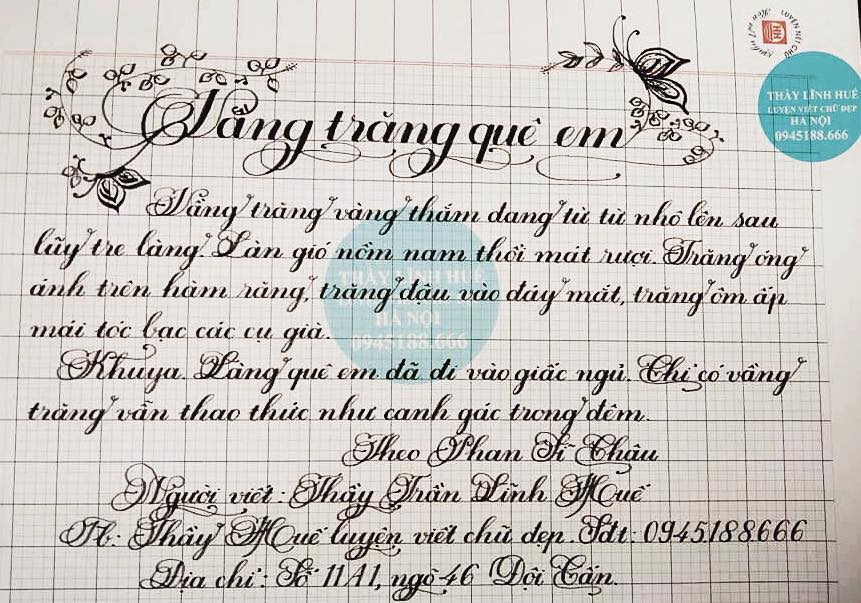 Vầng trăng quê em
Vầng trăng vàng thắm đang từ từ nhô lên sau
lũy tre làng. Làn gió nồm nam thổi mát rượi. Trăng óng
ánh trên hàm răng, trăng đậu vào đáy mắt, trăng ôm ấp
mái tóc bạc các cụ già.
Khuya. Làng quê em đã đi vào giấc ngủ. Chỉ có vầng
trăng vẫn thao thức như canh gác trong đêm.
Theo Phan Sĩ Châu
Người viết: Thầy Trần Lĩnh Huế
Fb: Thầy Huế luyện viết chữ đẹp. Sdt: 0945.188.666
Địa chỉ: Số 11A1, ngõ 46 Đội Cấn.
THẦY LĨNH HUẾ
LUYỆN VIẾT CHỮ ĐẸP
HÀ NỘI
0945188.666
THẦY LĨNH HUẾ
HÀ NỘI
0945188.666